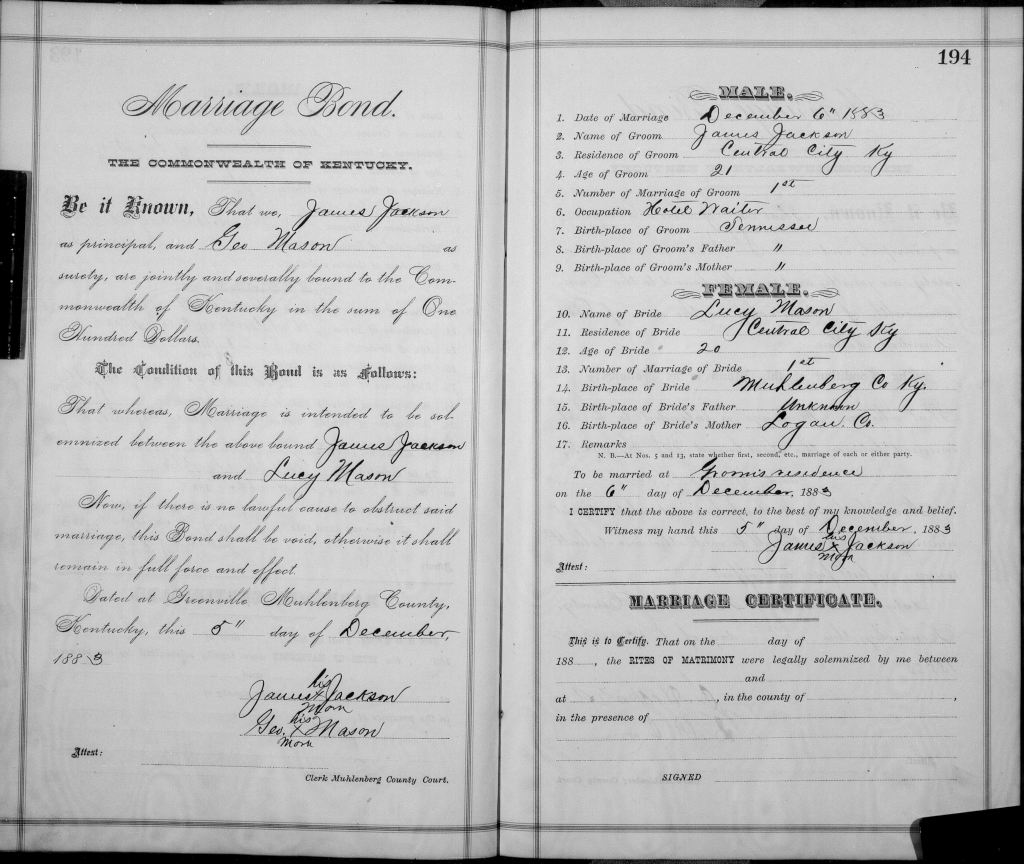 Marriage Bond.
THE COMMONWEALTH OF KENTUCKY.
Be it Known, That we, James Jackson
as principal, and Geo Mason as
surety, are jointly and severally bound to the Com-
monwealth of Kentucky in the sum of One
Hundred Dollars.
The Condition of this Bond is as Follows:
That whereas, Marriage is intended to be sol-
emnized between the above bound James Jackson
and Lucy Mason
Now, if there is no lawful cause to obstruct said
marriage, this Bond shall be void, otherwise it shall
remain in full force and effect.
Dated at Greenville Muhlenberg County,
Kentucky, this 5" day of December,
1883
his
James x Jackson
Mark
his
Geo. x Mason
Mark
Attest:
Clerk Muhlenberg County Court.
194
MALE.
1. Date of Marriage December 6" 1883
2. Name of Groom James Jackson
3. Residence of Groom Central City Ky
4. Age of Groom 21
5. Number of Marriage of Groom 1st
6. Occupation Hotel Waiter
7. Birth-place of Groom Tennissee
8. Birth-place of Groom's Father "
9. Birth-place of Groom's Mother "
FEMALE.
10. Name of Bride Lucy Mason
11. Residence of Bride Central City Ky
12. Age of Bride 20
13. Number of Marriage of Bride 1st
14. Birth-place of Bride Muhlenberg Co Ky.
15. Birth-place of Bride's Father Unknown
16. Birth-place of Bride's Mother Logan Co.
17. Remarks
N. B.—At Nos. 5 and 13, state whether first, second, etc., marriage of each or either party.
To be married at Groom's residence
on the 6" day of December, 1883
I CERTIFY that the above is correct, to the best of my knowledge and belief.
Witness my hand this 5" day of December, 1883
his
James x Jackson
Mark
Attest:
MARRIAGE CERTIFICATE.
This is to Certify, That on the day of
188 , the RITES OF MATRIMONY were legally solemnized by me between
and
at , in the county of ,
in the presence of
SIGNED